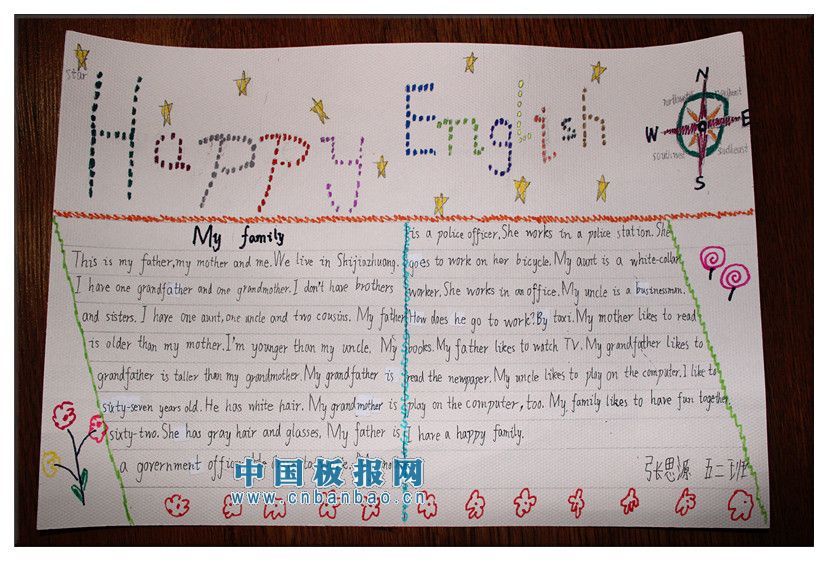 Star
Happy English
N
W
E
S
southwest
My family
This is my father, my mother and me. We live in Shijiazhuang.
I have one grandfather and one grandmother. I don't have brothers
and sisters. I have one aunt, one uncle and two cousins. My father
is older than my mother. I'm younger than my uncle. My
grandfather is taller than my grandmother. My grandfather is
sixty-seven years old. He has white hair. My grandmother is
sixty-two. She has gray hair and glasses. My father is
a government
is a police officer. She works in a police station. She
goes to work on her bicycle. My aunt is a white-collar
worker. She works in an office. My uncle is a businessman.
How does he go to work? By taxi. My mother likes to read
books. My father likes to watch TV. My grandfather likes to
read the newpaper. My uncle likes to play on the computer. I like to
play on the computer, too. My family likes to have fun together.
I have a happy family.
张思源 五二班
中国板报网
www.cnbanbao.cn